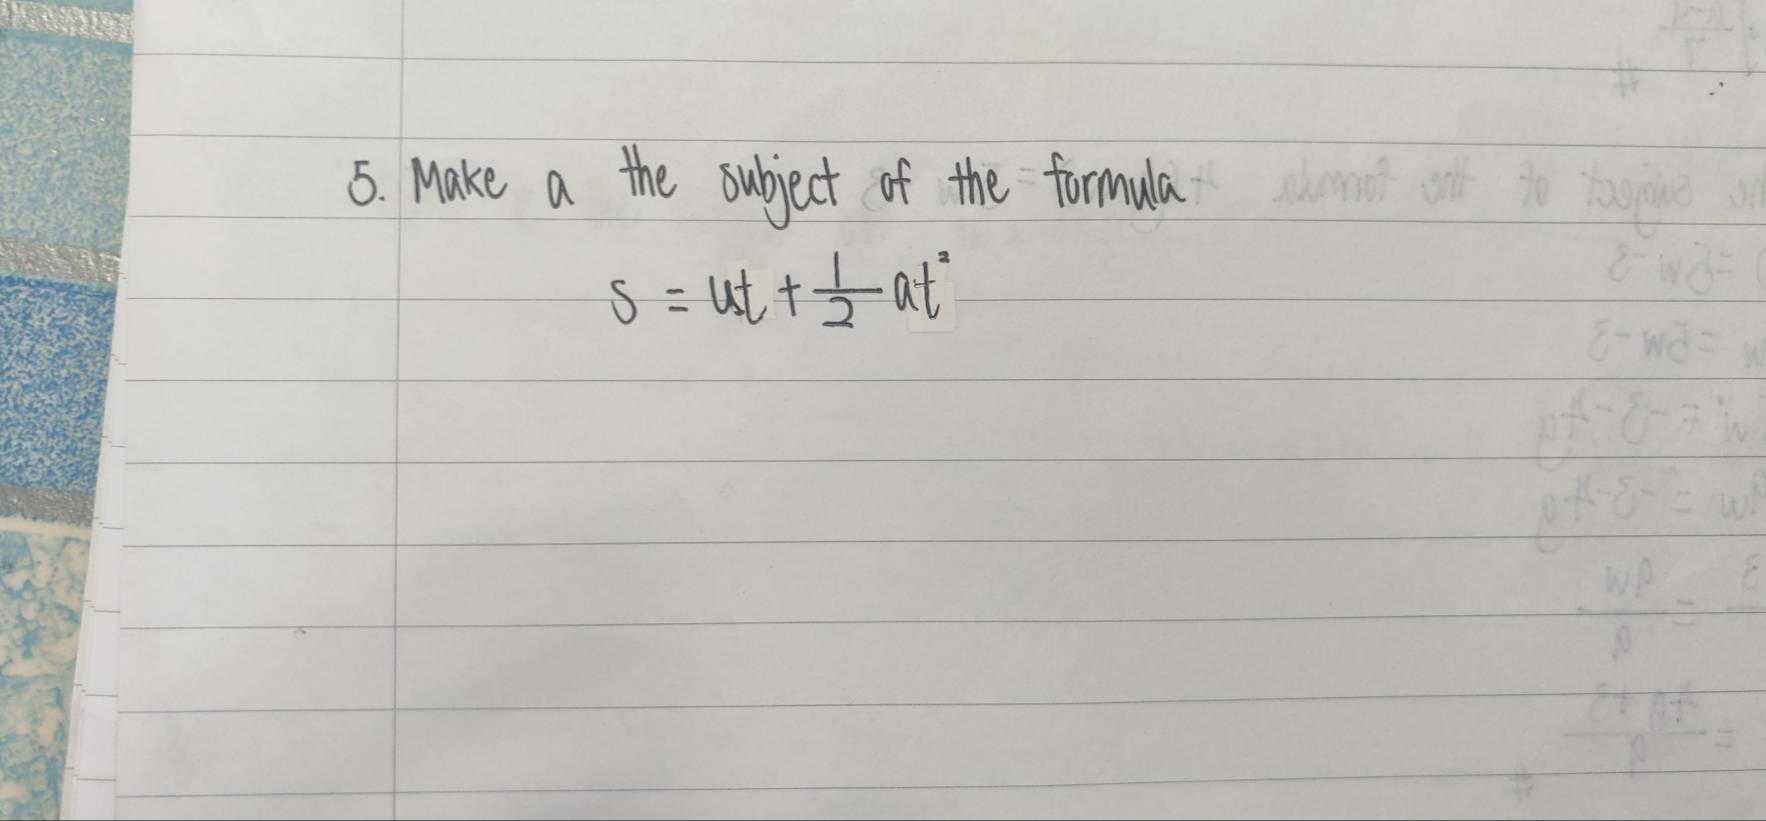 5. Make a the subject of the formula
s = ut + 1/2 at²